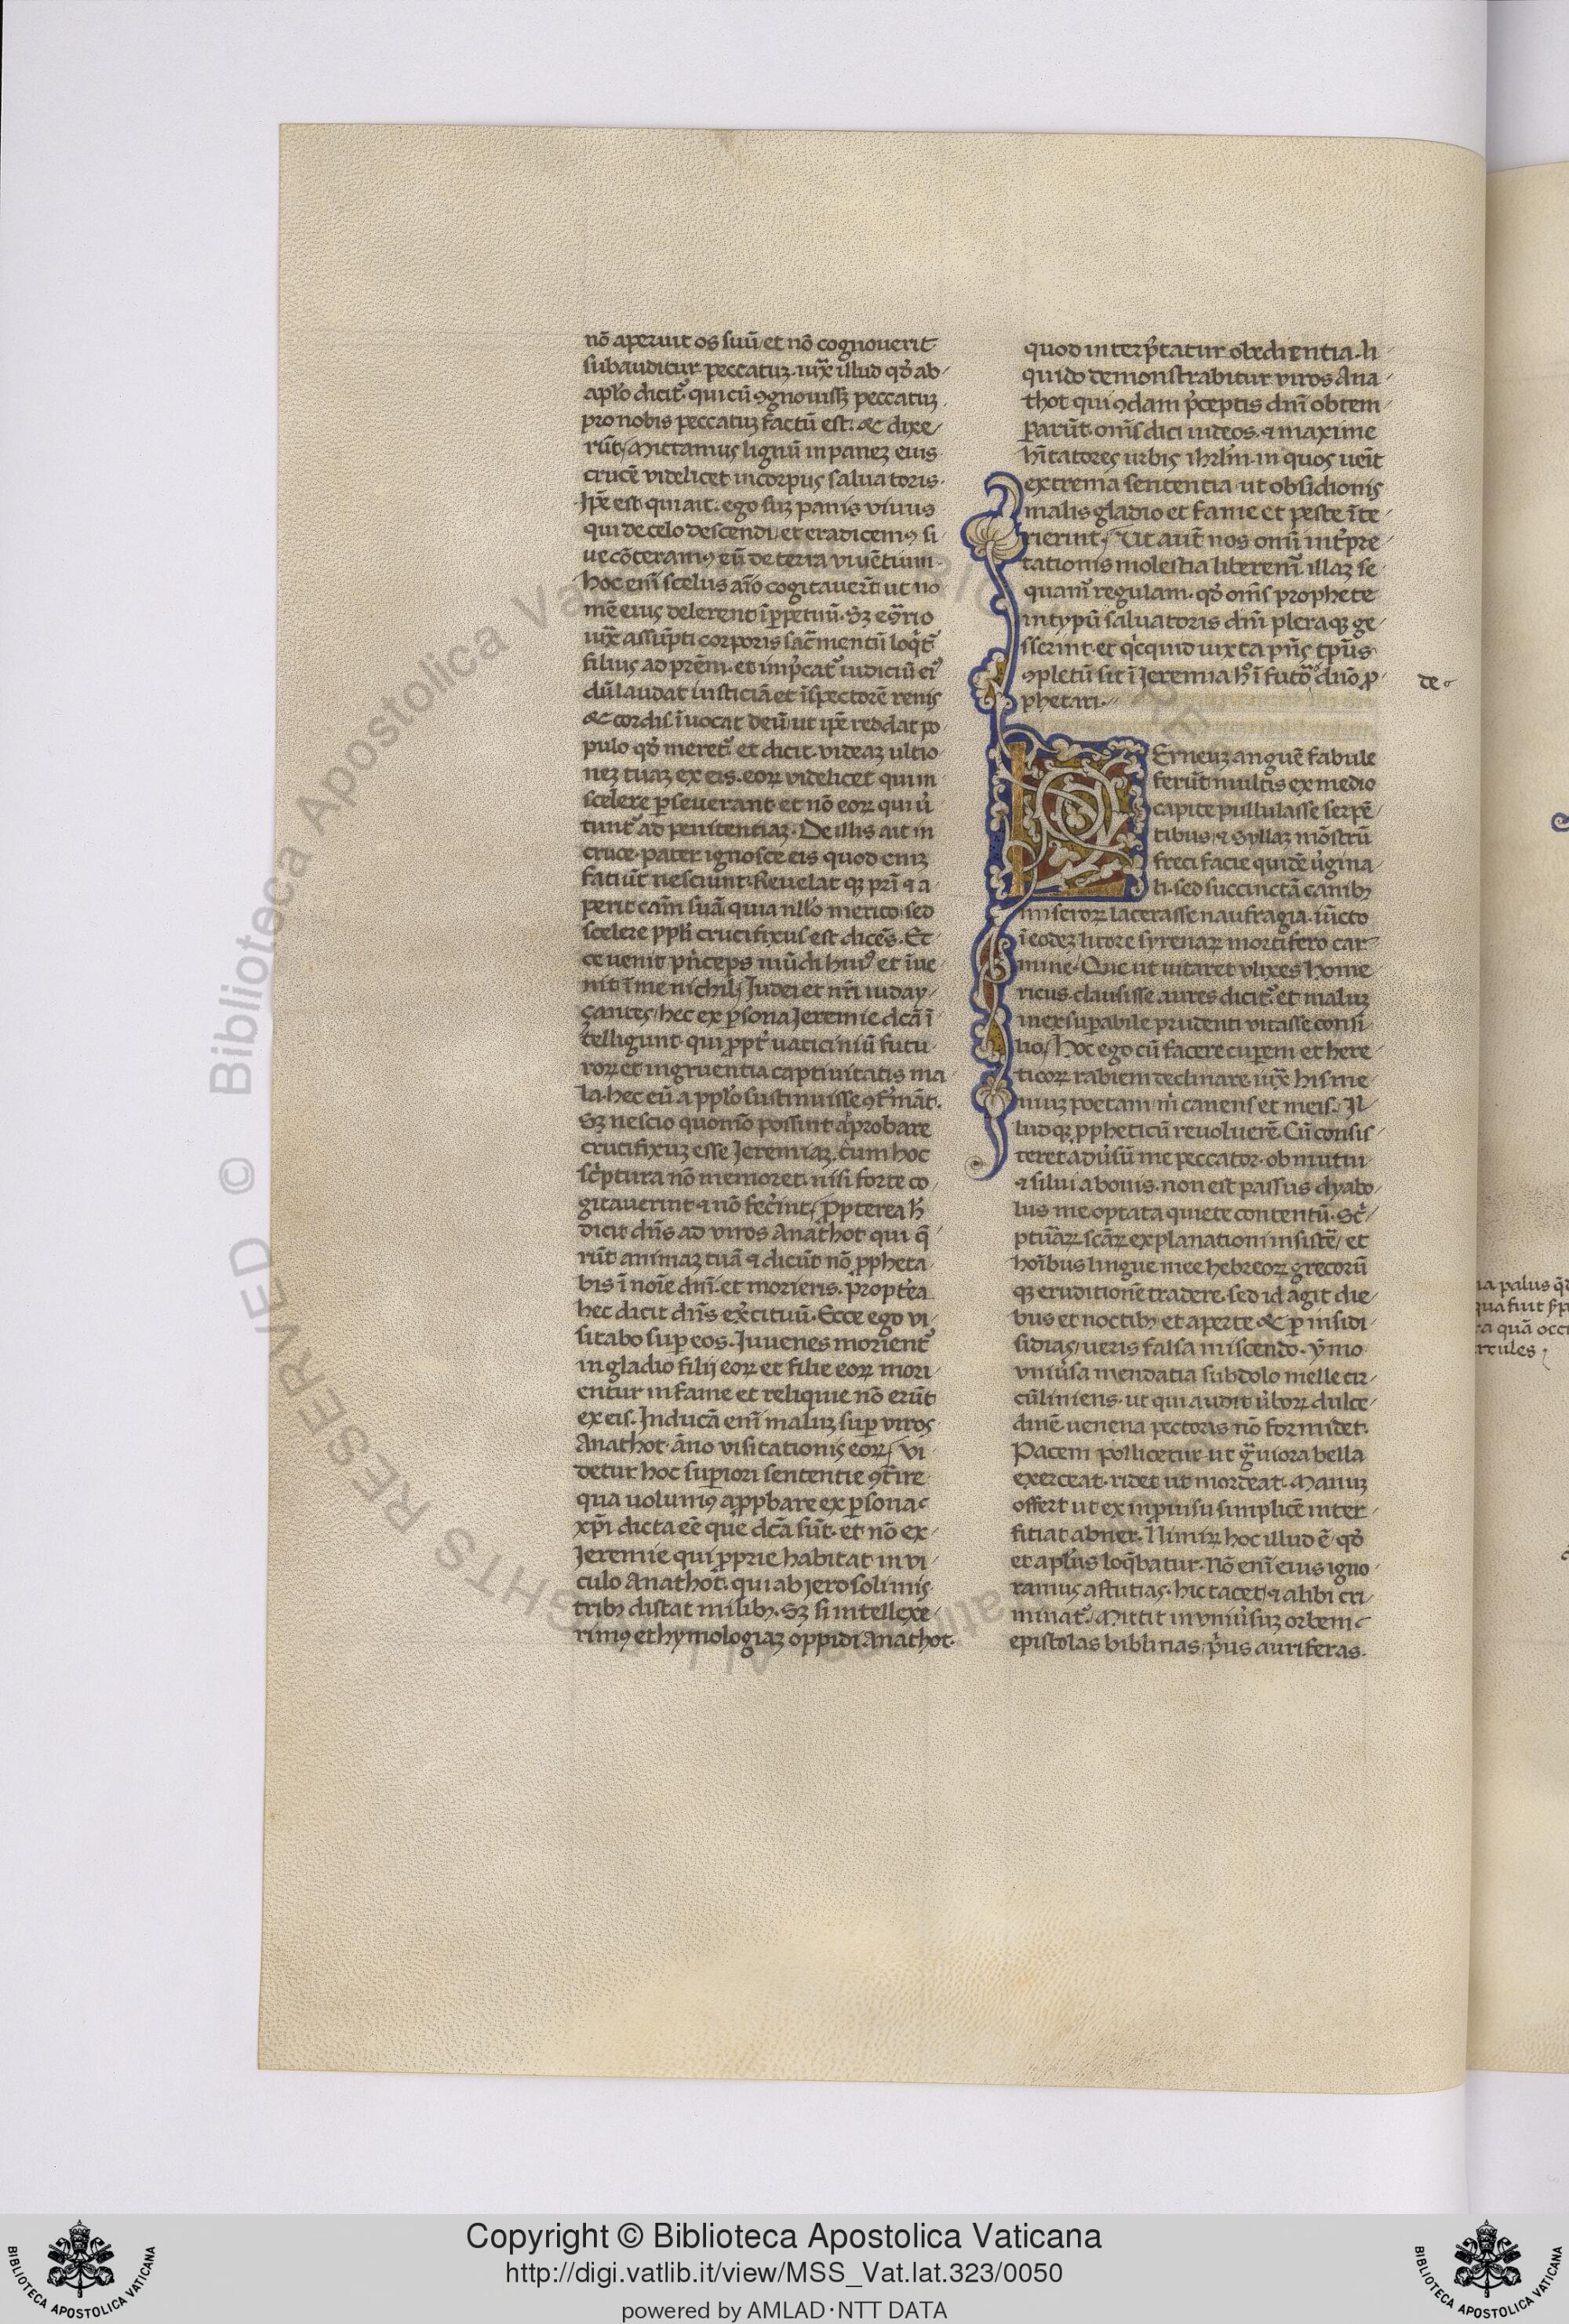 nō aperuit os suū et nō cognouerit
subauditur peccatuz. iuxͣ illud qđ ab
aplo dicit᷑. qui cū ꝯgnouissꝫ peccatuz
pro nobis peccatuz factū est. & dixe
rūt Mittamus lignū in panez eius
crucē videlicet in corpus saluatoris.
Ipē est qui ait. ego suz panis viuus
qui de celo descendi, et eradicemꝰ si
ue cōteramꝰ eū de terra viuētium.
hoc enī scelus aīo cogitauerūt ut no
mē eius delerent īperpetuū. Sꝫ
iuxͣ assūpti corporis sacͣmentū loqͥt᷑
filius ad prēm. et impͥcat᷑ iudiciū eiꝰ
dū laudat iusticiā et īspectorē renis
& cordis īuocat deū ut ipē reddat po
pulo qđ meret᷑ et dicit. videaz ultio
nez tuaz ex eis. eoꝝ videlicet qui in
scelere ꝑseuerant et nō eoꝝ qui ū
tunt᷑ ad penitentiaz. De illis ait in
cruce. pater ignosce eis quod eniz
fatiūt nesciunt. Reuelat qꝫ prī & a
perit cām suā quia nllō merito sed
scelere ppli crucifixus est dicēs. Ec
ce uenit pͥnceps mūdi huiꝰ et īue
nit ī me nichil. Iudei et nrī iuday
çantes, hec ex ꝑsona Jeremie dcā ī
telligunt. qui ꝓpt̄ uaticiniū futu
roꝝ et ingruentia captiuitatis ma
la. hec eū a pplō sustinuisse ꝯfͥmāt.
Sꝫ nescio quomō possint aꝓbare
crucifixuz esse Jeremiaz, cum hoc
scͥptura nō memoret. nisi forte co
gitauerint & nō fecͥint. Propterea h̄
dicit dn̄s ad viros Anathot qui q̄
rūt animaz tuā & dicūt nō ꝓpheta
bis ī noīe dn̄i. et morieris. propterea
hec dicit dn̄s exͥcituū. Ecce ego vi
sitabo suꝑ eos. Iuuenes morient᷑
in gladio filij eoꝝ et filie eoꝝ mori
entur in fame et reliquie nō erūt
ex eis. Inducā enī maluz suꝑ viros
Anathot āno visitationis eoꝝ, vi
detur hoc suꝑiori sententie ꝯtͣire
qua uolumꝰ aꝓpbare ex ꝑsona
xpī dicta eē que dcā sūt. et nō ex
Jeremie qui ꝓprie habitat in vi
culo Anathot. qui ab jerosolimis
tribꝫ distat milibꝫ. Sꝫ si intellexe
rimꝰ ethymologiaz oppidi Anathot.
quod interpͥtatur obedientia. li
quido demonstrabitur viros Ana
thot qui ꝯdam pͥceptis dn̄i obtem
ꝑarūt. omīs dici iudeos. & maxime
hītatores urbis ihrlm̄. in quos ueīt
extrema sententia ut obsidionis
malis gladio et fame et peste īte
rierint. Ut aut̄ nos omī intͥpre
tationis molestia liberem᷑. illaz se
quam᷑ regulam. qđ omīs prophete
in typū saluatoris dn̄i pleraqꝫ ge
sserint. et qͥcquid iuxta pn̄s tp̄us
ꝯpletū sit ī Jeremia hͦ ī futōꝝ dn̄o ꝓ
phetari.
de
LErneuz anguē fabule
ferūt multis ex medio
capite pullulasse serpē
tibus. & Syllaz mōstrū
freti facie quidē ūgina
li. sed succinctā canibꝫ
miseroꝝ lacerasse naufragia. iūcto
ī eodez litore syrenaꝝ mortifero car
mine. Que ut uitaret vlixes home
ricus. clausisse aures dicit᷑. et maluz
inexsuꝑabile prudenti vitasse consi
lio, Hoc ego cū facere cuꝑem et here
ticoꝝ rabiem declinare. iuxͣ hisme
niuz poetam mͥ canens et meis. Il
ludqꝫ ꝓpheticū reuoluerē. Cū consis
teret adūsū me peccator. obmutui
& silui a bonis. non est passus dyabo
lus me optata quiete contentū. Scͥ
ptuͣaꝝ scāꝝ explanationi insistē, et
hoībus lingue mee hebreoꝝ grecorū
qꝫ eruditionē tradere. sed id agit die
bus et noctibꝫ et aperte & ꝑ insidi
sidias, ueris falsa miscendo. ymo
vniūsa mendatia subdolo melle cir
cūliniens. ut qui audit ūboꝝ dulce
dinē uenena pectoris nō formidet.
Pacem pollicetur ut gͣuiora bella
exerceat. ridet ut mordeat. Manuz
offert ut ex inpͥuisu simplicē inter
fitiat abner. Nimiꝝ hoc illud ē. qđ
et apl̄us loqͣbatur. Nō enī eius igno
ramus astutias. hic tacet, & alibi cri
minat᷑. Mittit in vniūsuz orbem
epistolas biblinas, pͥus auriferas.
Copyright © Biblioteca Apostolica Vaticana
http://digi.vatlib.it/view/MSS_Vat.lat.323/0050
powered by AMLAD·NTT DATA
BIBLIOTECA APOSTOLICA VATICANA
BIBLIOTECA APOSTOLICA VATICANA